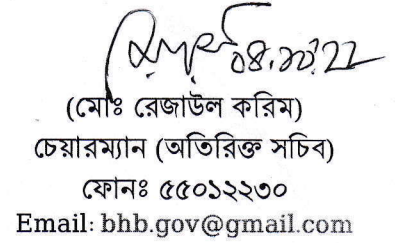 ০৪.১০.২২
(মোঃ রেজাউল করিম)
চেয়ারম্যান (অতিরিক্ত সচিব)
ফোনঃ ৫৫০১২২৩০
Email: bhb.gov@gmail.com